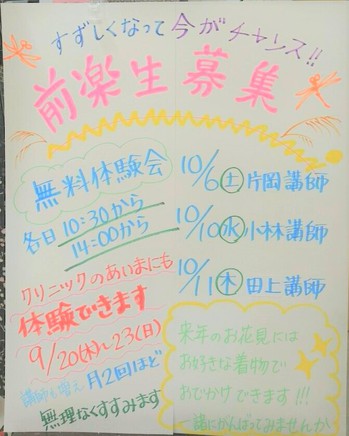 すずしくなって今がチャンス!!
前楽生募集
無料体験会
各日10:30から
14:00から
10/6(土)片岡講師
10/10(水)小林講師
10/11(木)田上講師
クリニックのあいまにも
体験できます
9/20(木)~23(日)
講師も増え月2回ほど
無理なくすすみます
来年のお花見には
お好きな着物で
おでかけできます!!!
一緒にがんばってみませんか